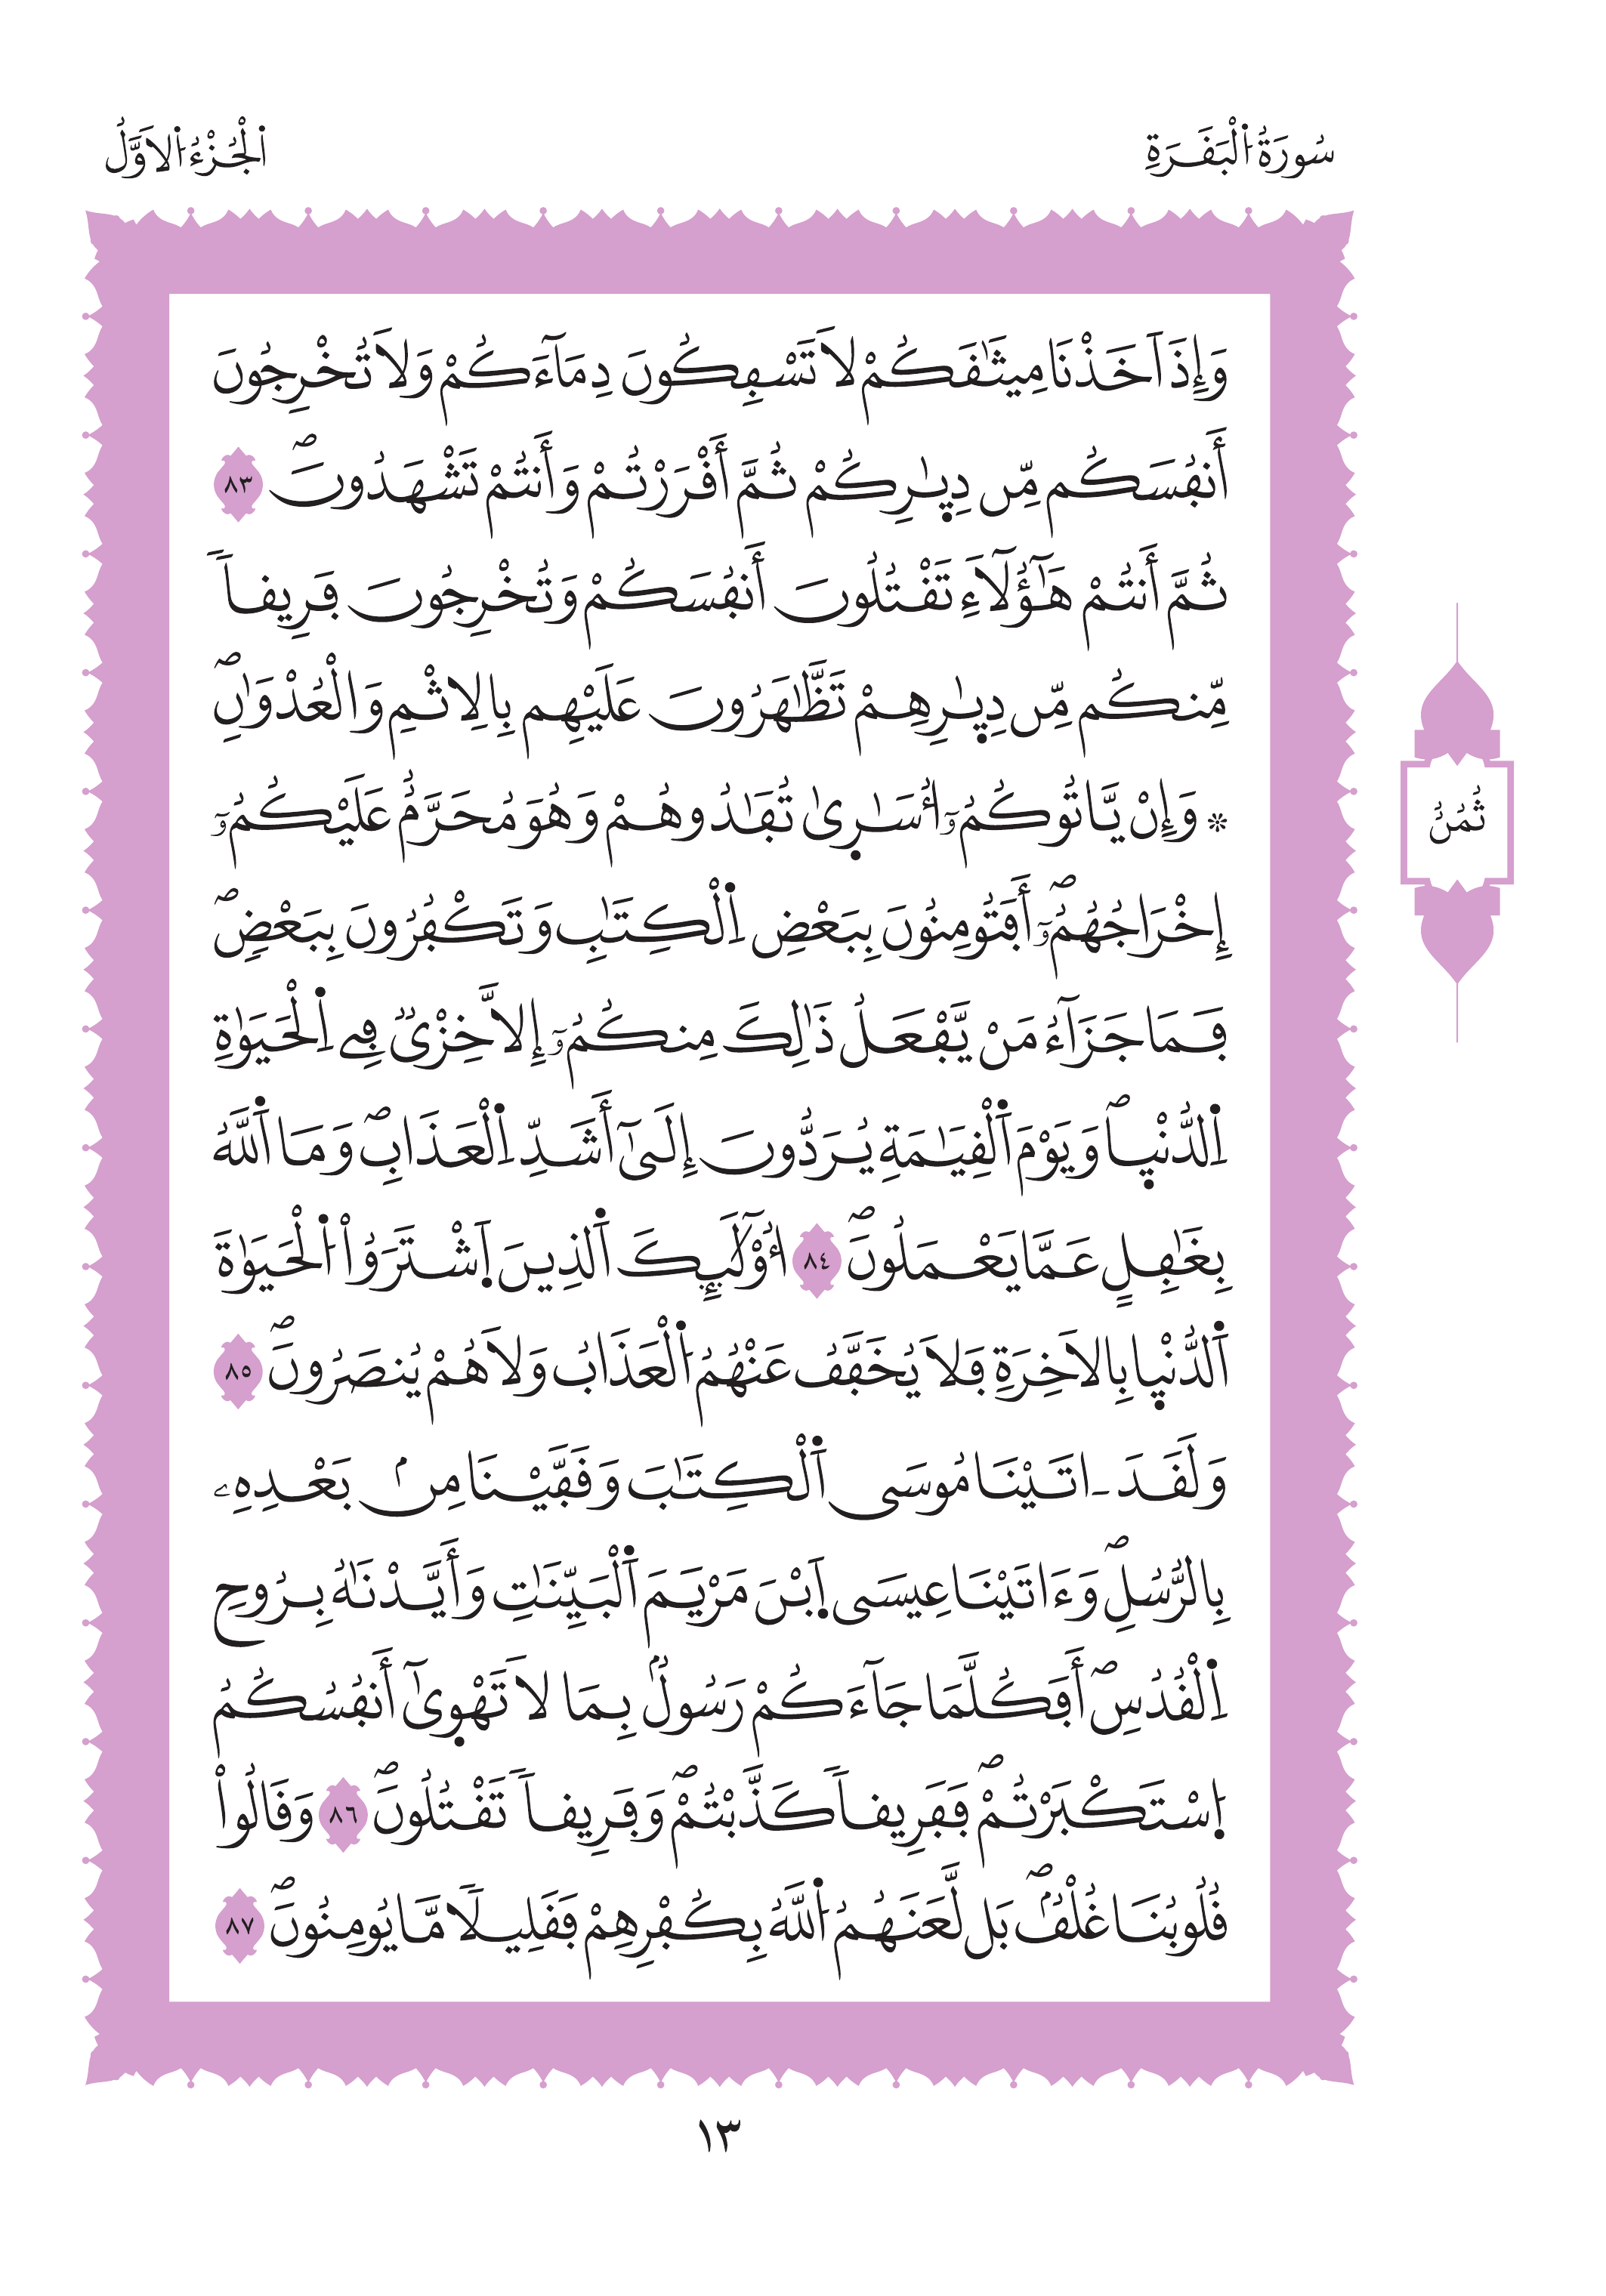 سُورَةُ اُ۬لْبَقَرَةِ
اَ۬لْجُزْءُ اُ۬لَاوَّلُ
وَإِذَ اَخَذْنَا مِيثَٰقَكُمْ لَا تَسْفِكُونَ دِمَآءَكُمْ وَلَا تُخْرِجُونَ
أَنفُسَكُم مِّن دِيٰ۪رِكُمْ ثُمَّ أَقْرَرْتُمْ وَأَنتُمْ تَشْهَدُونَۖ ٨٣
ثُمَّ أَنتُمْ هَٰٓؤُلَآءِ تَقْتُلُونَ أَنفُسَكُمْ وَتُخْرِجُونَ فَرِيقاٗ
مِّنكُم مِّن دِيٰ۪رِهِمْ تَظَّٰهَرُونَ عَلَيْهِم بِالِاثْمِ وَالْعُدْوَٰنِۖ
۞ وَإِنْ يَّاتُوكُمُۥٓ أُسَٰر۪يٰ تُفَٰدُوهُمْ وَهُوَ مُحَرَّمٌ عَلَيْكُمُۥٓ
إِخْرَاجُهُمُۥٓۖ أَفَتُومِنُونَ بِبَعْضِ اِ۬لْكِتَٰبِ وَتَكْفُرُونَ بِبَعْضٖۖ
فَمَا جَزَآءُ مَنْ يَّفْعَلُ ذَٰلِكَ مِنكُمُۥٓ إِلَّا خِزْيٞ فِے اِ۬لْحَيَوٰةِ
اِ۬لدُّنْي۪اۖ وَيَوْمَ اَ۬لْقِيَٰمَةِ يُرَدُّونَ إِلَيٰٓ أَشَدِّ اِ۬لْعَذَابِۖ وَمَا اَ۬للَّهُ
بِغَٰفِلٍ عَمَّا يَعْمَلُونَۖ ٨٤ أُوْلَٰٓئِكَ اَ۬لذِينَ اَ۪شْتَرَوُاْ اُ۬لْحَيَوٰةَ
اَ۬لدُّنْي۪ا بِالَاخِرَةِ فَلَا يُخَفَّفُ عَنْهُمُ اُ۬لْعَذَابُ وَلَا هُمْ يُنصَرُونَۖ ٨٥
وَلَقَدَ ـ اتَيْنَا مُوسَي اَ۬لْكِتَٰبَ وَقَفَّيْنَا مِنۢ بَعْدِهِۦ
بِالرُّسُلِۖ وَءَاتَيْنَا عِيسَي اَ۪بْنَ مَرْيَمَ اَ۬لْبَيِّنَٰتِ وَأَيَّدْنَٰهُ بِرُوحِ
اِ۬لْقُدُسِۖ أَفَكُلَّمَا جَآءَكُمْ رَسُولُۢ بِمَا لَا تَهْو۪يٰٓ أَنفُسُكُمُ
اُ۪سْتَكْبَرْتُمْۖ فَفَرِيقاٗ كَذَّبْتُمْۖ وَفَرِيقاٗ تَقْتُلُونَۖ ٨٦ وَقَالُواْ
قُلُوبُنَا غُلْفُۢۖ بَل لَّعَنَهُمُ اُ۬للَّهُ بِكُفْرِهِمْ فَقَلِيلاٗ مَّا يُومِنُونَۖ ٨٧
ثُمُنٌ
١٣